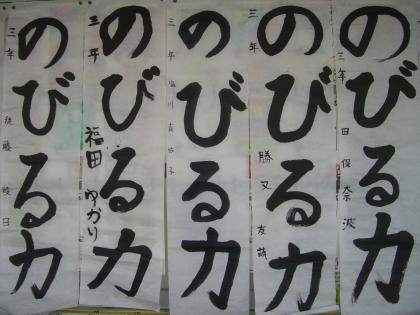 のびる力
三年 田 保奈波
のびる力
三年 勝又友
のびる力
三年 塩川真
子
のびる力
三年 福田ゆかり
のびる力
三年 後藤 日